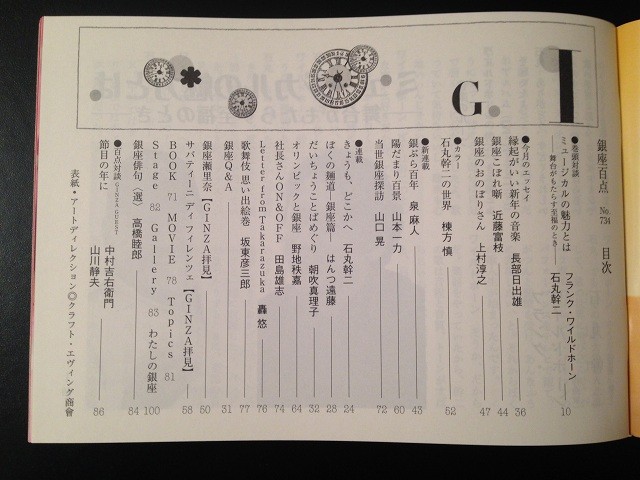 G I
銀座百点 No.734 目次
●巻頭対談
ミュージカルの魅力とは
――舞台がもたらす至福のとき――
フランク・ワイルドホーン
石丸幹二 10
●今月のエッセイ
縁起がいい新年の音楽 長部日出雄 36
銀座こぼれ噺 近藤富枝 44
銀座のおのぼりさん 上村淳之 47
●カラー
石丸幹二の世界 棟方 慎 52
●新連載
銀ぶら百年 泉 麻人 43
陽だまり百景 山本一力 60
当世銀座探訪 山口 晃 72
●連載
きょうも、どこかへ 石丸幹二 24
ぼくの麺道 銀座篇 はんつ遠藤 28
だいちょうことばめぐり 朝吹真理子 32
オリンピックと銀座 野地秩嘉 64
社長さんON&OFF 田島雄志 74
Letter from Takarazuka 轟 悠 76
歌舞伎 思い出絵巻 坂東彦三郎 77
銀座Q&A 31
銀座瀬里奈【GINZA拝見】 50
サバティーニ ディ フィレンツェ【GINZA拝見】 58
BOOK 71 MOVIE 78 Topics 81
Stage 82 Gallery 83 わたしの銀座 100
銀座俳句〈選〉 高橋睦郎 84
●百点対談 GINZA GUEST
節目の年に
中村吉右衛門
山川静夫 86
表紙・アートディレクション◎クラフト・エヴィング商會